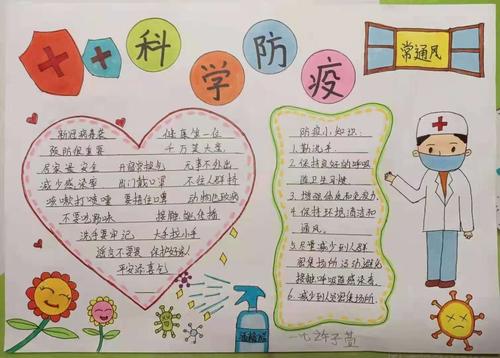 科学防疫
常通风
新冠病毒袭
健康第一位
预防很重要
千万莫大意
居家最安全 开窗勤换气 无事不外出
减少感染率 出门戴口罩 不往人群挤
咳嗽打喷嚏 要捂住口鼻 动物也致病
不要吃野味 接触他传播
洗手要牢记 大手拉小手
谣言不要信 保护好家人
平安添喜气
防疫小知识：
1.勤洗手
2.保持良好的呼吸
道卫生习惯
3.增强体质和免疫力
4.保持环境清洁和
通风。
5.尽量减少到人群
密集场所活动避免
接触呼吸道感染者
6.减少到人密集场所.